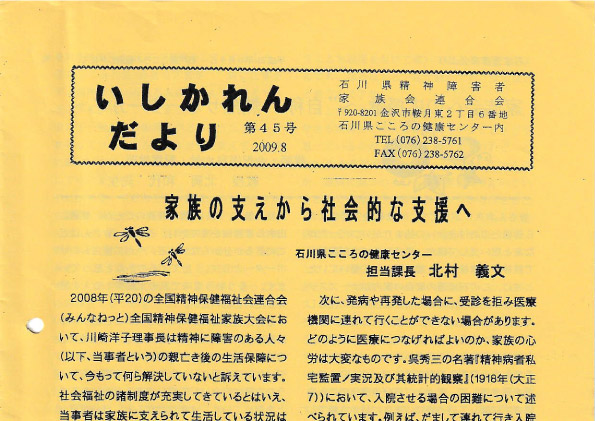 いしかれん
だより
第45号
2009.8
石川県精神障害者
家族会連合会
〒920-8201 金沢市鞍月東2丁目6番地
石川県こころの健康センター内
TEL (076) 238-5761
FAX (076) 238-5762
家族の支えから社会的な支援へ
石川県こころの健康センター
担当課長 北村 義文
2008年(平20)の全国精神保健福祉会連合会
(みんなねっと)全国精神保健福祉家族大会にお
いて、川崎洋子理事長は精神に障害のある人々
(以下、当事者という)の親亡き後の生活保障につ
いて、今もって何ら解決していないと訴えています。
社会福祉の諸制度が充実してきているとはいえ、
当事者は家族に支えられて生活している状況は
次に、発病や再発した場合に、受診を拒み医療
機関に連れて行くことができない場合があります。
どのように医療につなげればよいのか、家族の心
労は大変なものです。呉秀三の名著『精神病者私
宅監置ノ実況及び其統計的観察』(1918年(大正
7))において、入院させる場合の困難について述
べられています。例えば、だまして連れて行き入院